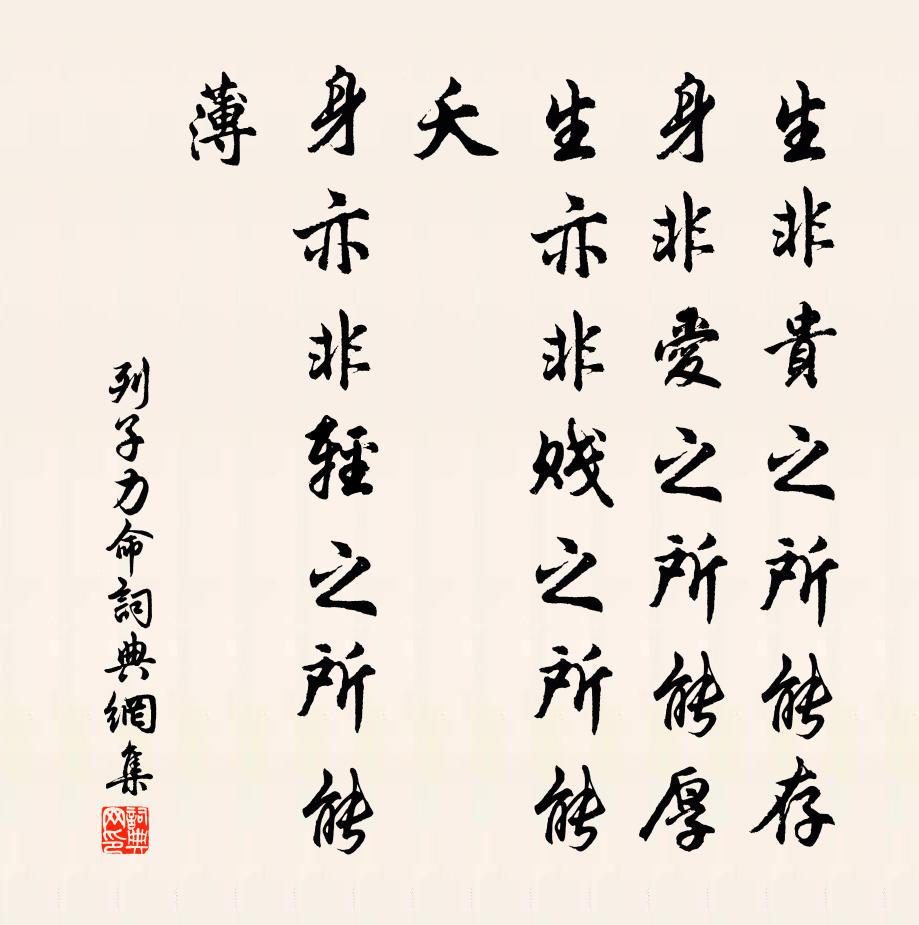 生非貴之所能存
身非愛之所能厚
生亦非賤之所能
夭
身亦非輕之所能
薄
列子力命詞典網集
詞典
网印